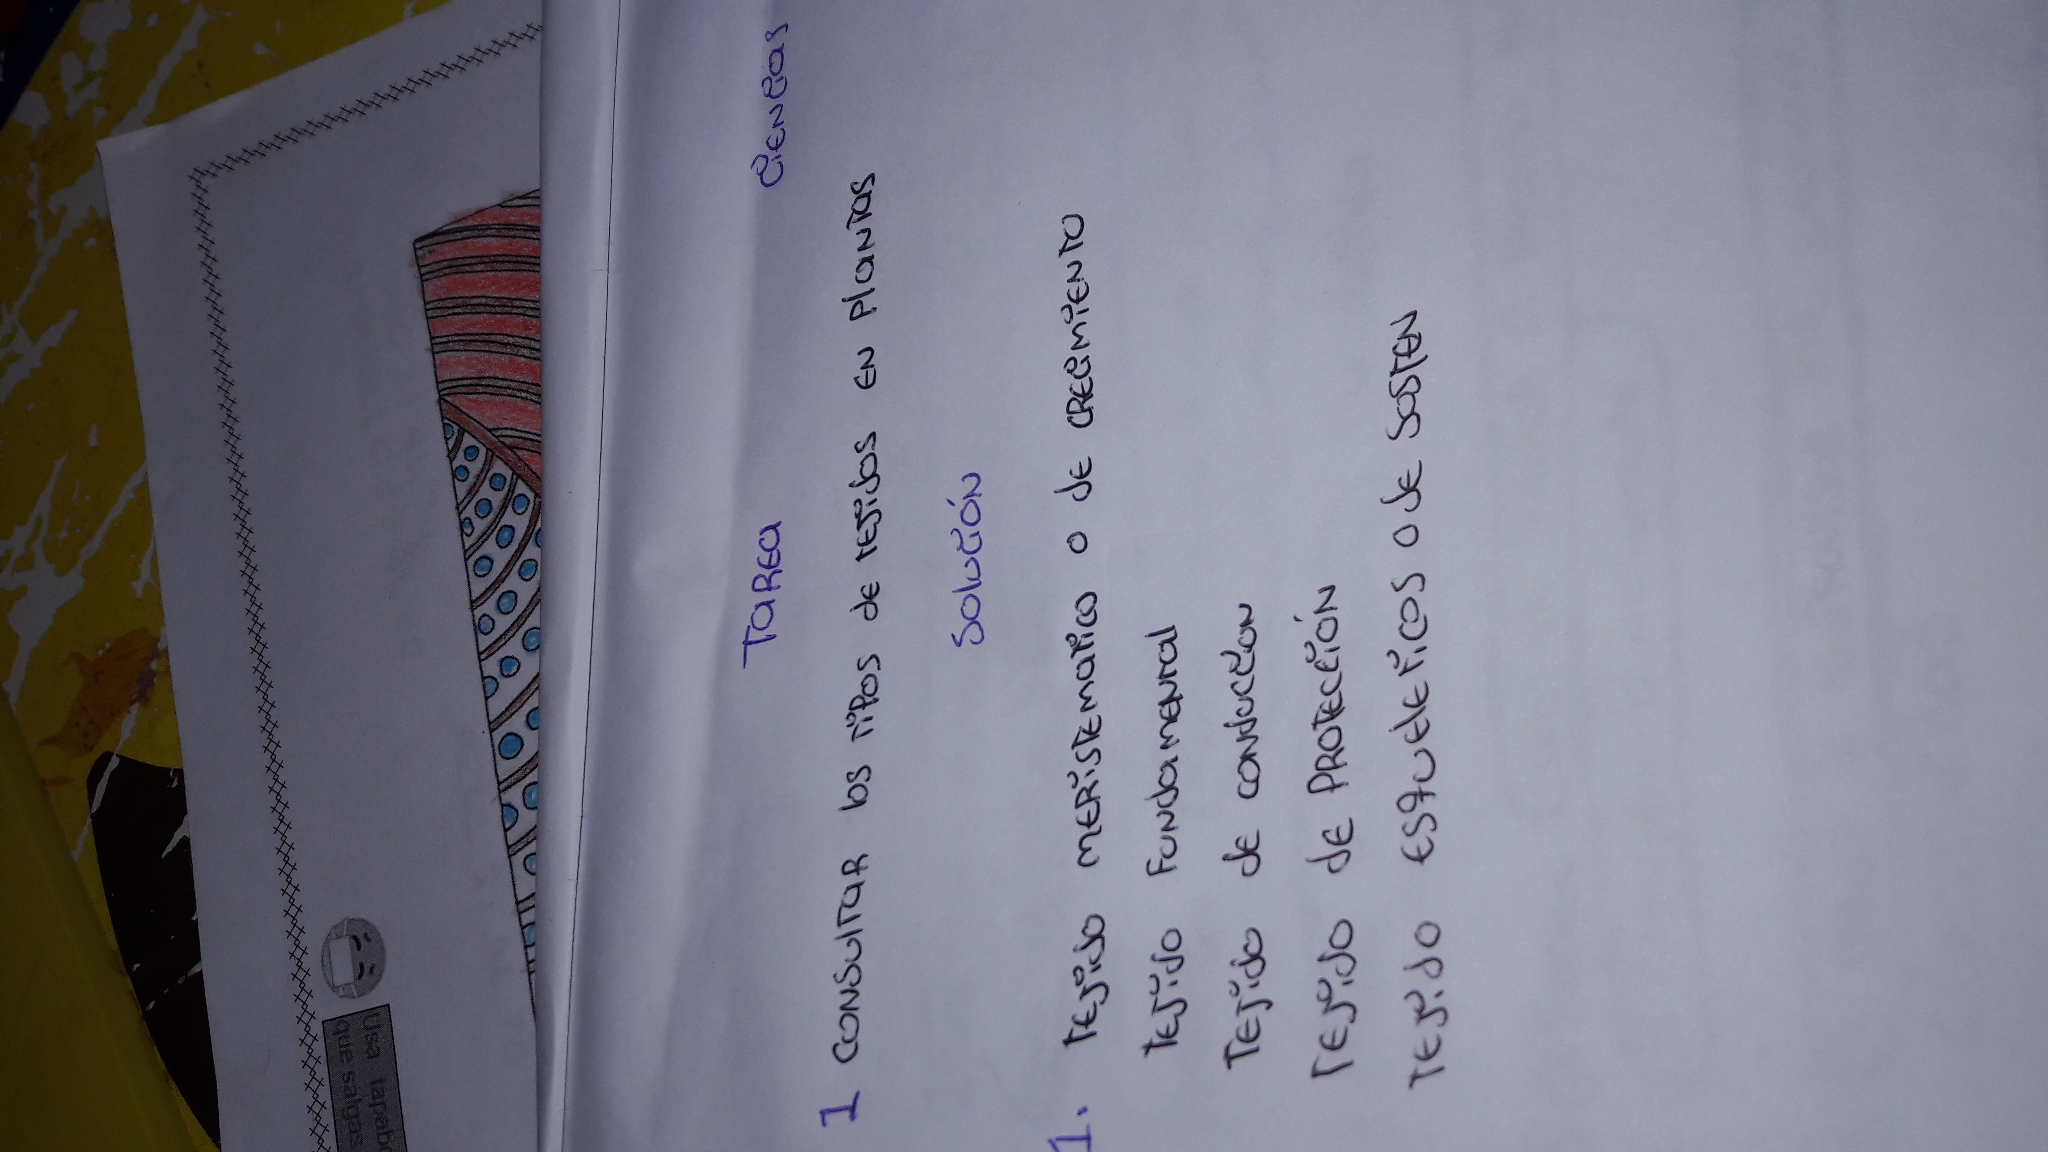 Tarea Ciencias
1 Consultar los tipos de tejidos en plantas
Solución
1. Tejido meristematico o de crecimiento
Tejido Fundamental
Tejido de conduccion
Tejido de protección
Tejido esqueleticos o de sosten
Usa tapab
que salgas